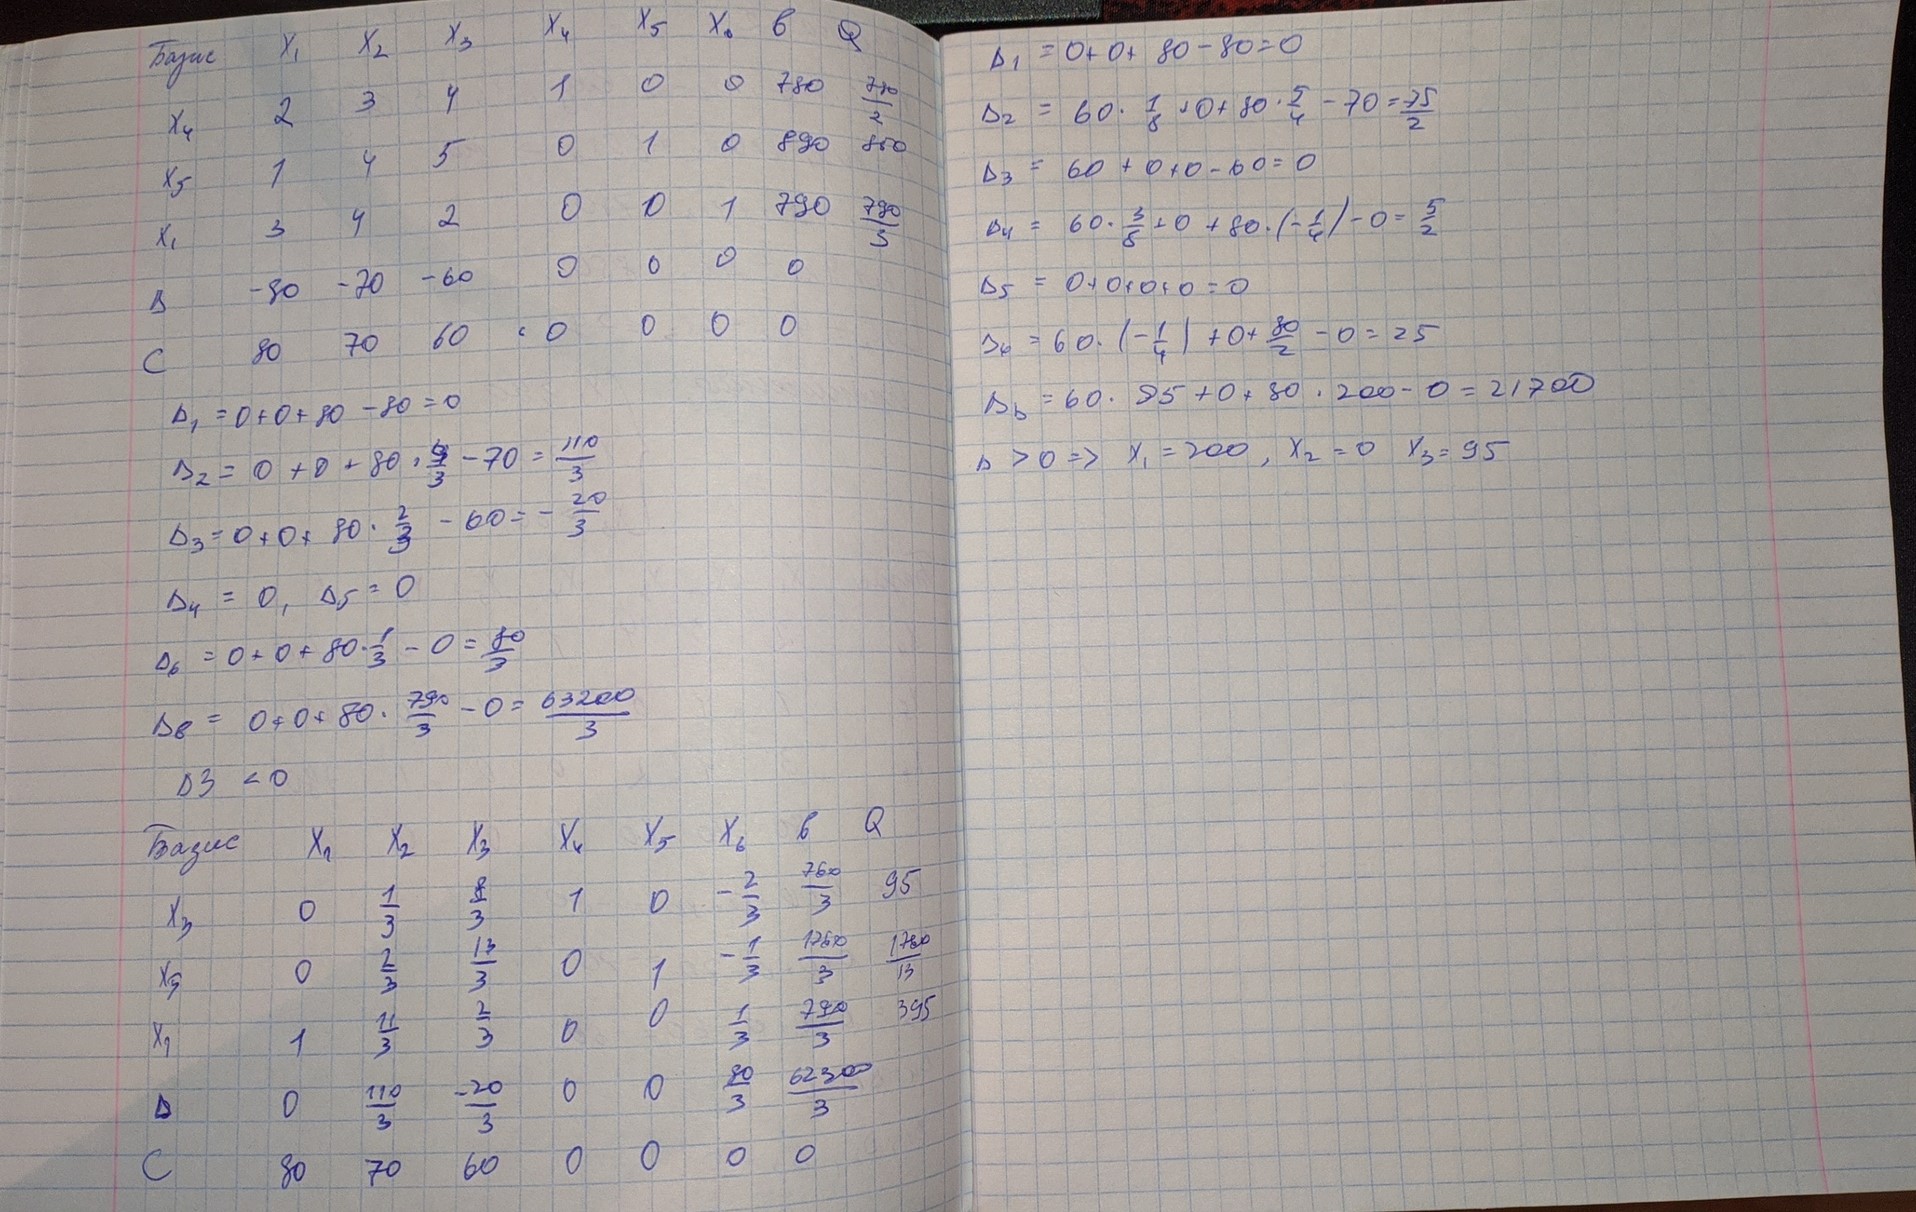 Базис X₁ X₂ X₃ X₄ X₅ X₆ в Q
X₄ 2 3 4 1 0 0 780 780/2
X₅ 1 4 5 0 1 0 890 890
X₁ 3 4 2 0 0 1 790 790/3
Δ -80 -70 -60 0 0 0 0
C 80 70 60 0 0 0 0
Δ₁ = 0+0+80-80=0
Δ₂ = 0+0+80·4/3-70=110/3
Δ₃ = 0+0+80·2/3-60=-20/3
Δ₄ = 0, Δ₅ = 0
Δ₆ = 0+0+80·1/3-0=80/3
Δв = 0+0+80·790/3-0=63200/3
Δ3 <0
Базис X₁ X₂ X₃ X₄ X₅ X₆ в Q
X₃ 0 1/3 8/3 1 0 -2/3 760/3 95
X₅ 0 2/3 13/3 0 1 -1/3 1760/3 1780/13
X₁ 1 11/3 2/3 0 0 1/3 790/3 395
Δ 0 110/3 -20/3 0 0 80/3 62300/3
C 80 70 60 0 0 0 0
Δ₁ = 0+0+80-80=0
Δ₂ = 60·1/8+0+80·5/4-70=75/2
Δ₃ = 60+0+0-60=0
Δ₄ = 60·3/8+0+80·(-1/4)-0=5/2
Δ₅ = 0+0+0+0=0
Δ₆ = 60·(-1/4)+0+80/2-0=25
Δb = 60·95+0+80·200-0=21700
Δ >0 => X₁=200, X₂=0 X₃=95